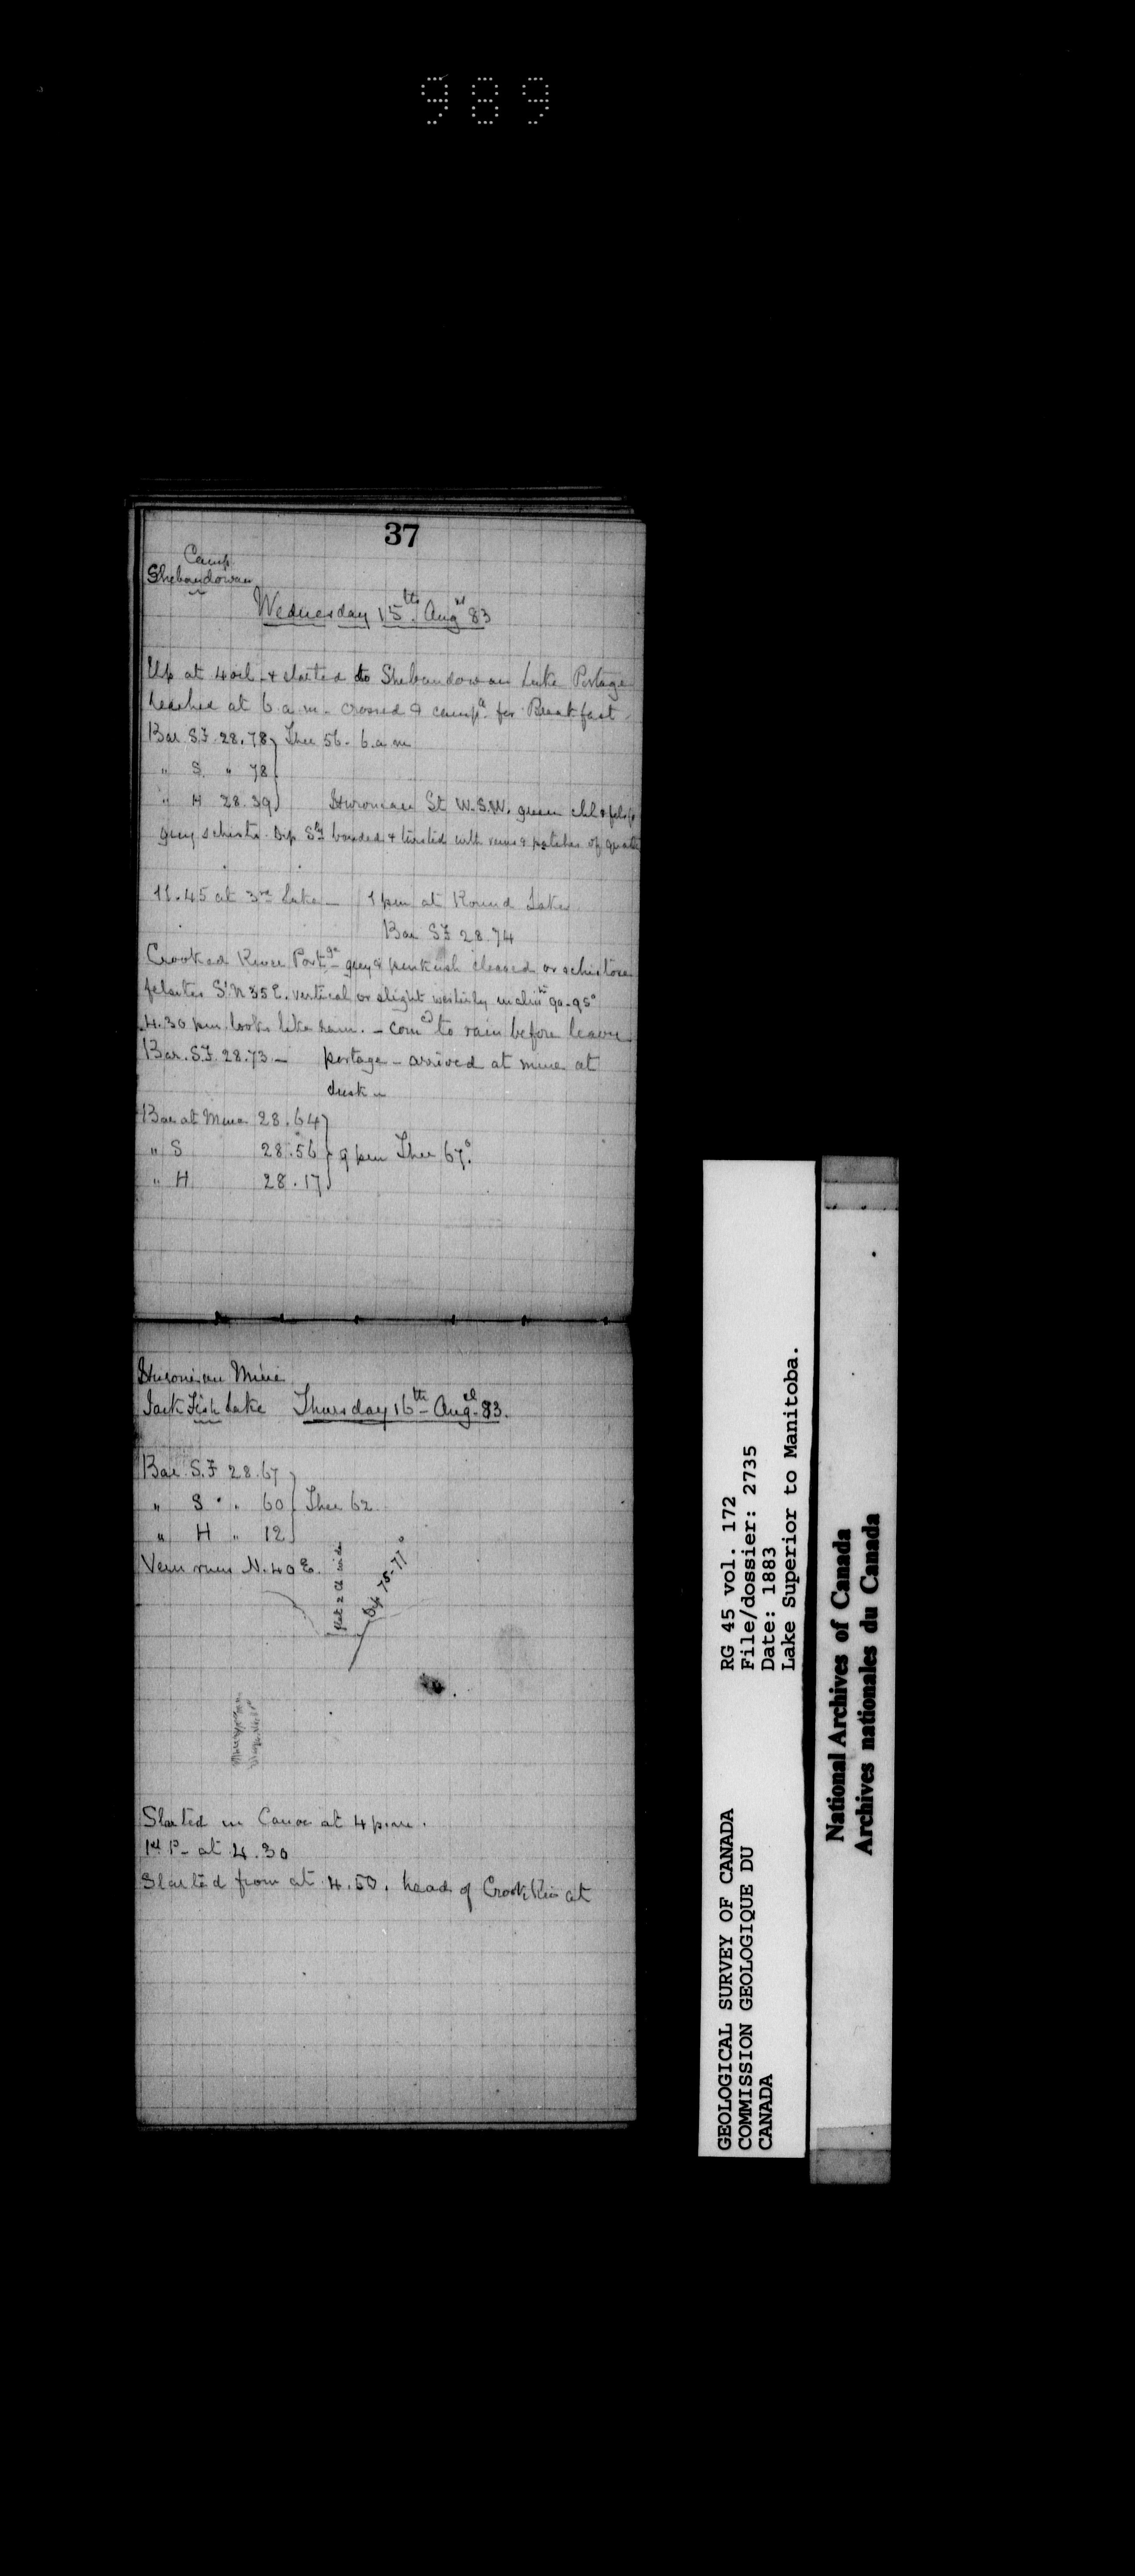 989
37
Camp
Shebandowan
Wednesday 15th Augst 83
Up at 4 ocl & started to Shebandowan Lake Portage
reached at 6 a.m. crossed & campd for Breakfast
Bar S.F. 28.78 } Ther 56. 6 a.m
" S. " 78
" H 28.39 } Huronian St W.S.W. green chl & felsp
grey schists. Dip Sly banded & twisted with veins & patches of quartz
11.45 at 3rd Lake — 1 pm at Round Lake
Bar SF 28.74
Crooked River Portge grey & pinkish cleaved or schistose
felsites S. N 35 E. vertical or slight westerly inclinn 90-95°
4.30 pm looks like rain. - comcd to rain before leave
Bar. S.F. 28.73 — portage - arrived at mine at
dusk -
Bar at Mine 28.64
" S 28.56 } 9 pm Ther 67°
" H 28.17
Huronian Mine
Jack Fish Lake Thursday 16th Augst 83.
Bar. S.F 28.67
" S " 60 } Ther 62
" H " 12
Vein runs N.40 E.
flat 2 ch wide
Dip 75-77°
Started in Canoe at 4 p.m.
1st P- at 4.30
Started from at 4.50. head of Crook Riv at
GEOLOGICAL SURVEY OF CANADA
COMMISSION GEOLOGIQUE DU
CANADA
RG 45 vol. 172
File/dossier: 2735
Date: 1883
Lake Superior to Manitoba.
National Archives of Canada
Archives nationales du Canada